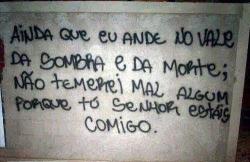 AINDA QUE EU ANDE NO VALE
DA SOMBRA E DA MORTE;
NÃO TEMEREI MAL ALGUM
PORQUE TÚ SENHOR ESTÁIS
COMIGO.